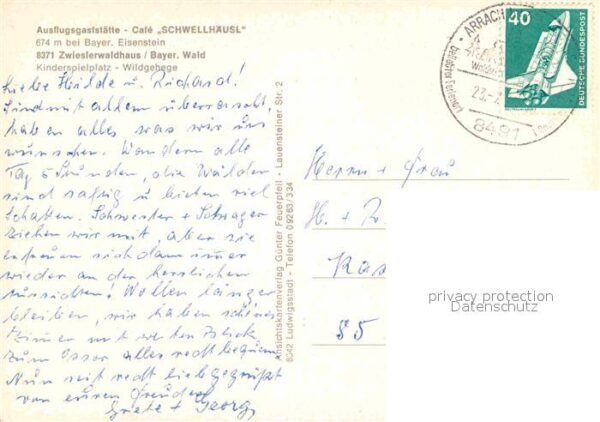 Ausflugsgaststätte - Café „SCHWELLHÄUSL"
674 m bei Bayer. Eisenstein
8371 Zwieslerwaldhaus / Bayer. Wald
Kinderspielplatz - Wildgehege
Liebe Hilde u. Richard!
Sind mit allem überrascht,
haben alles was wir uns
wünschen. Wandern alle
Tag 5 Stunden, die Wälder
sind saftig u bieten viel
Schatten. Schwester + Schwager
ziehen wir mit, aber sie
erfreuen sich dann immer
wieder an der herrlichen
Aussichten! Wollen länger
bleiben, wir haben schöne
Zimmer mit weiten Blick
zum Osser alles recht bequem
Nun seit recht lieb gegrüßt
von euren Freunden
Grete + Georg
Ansichtskartenverlag Günter Feuerpfeil - Lauensteiner Str. 2
8642 Ludwigsstadt - Telefon 09263/334
ARRACH
23.-
8491
40
DEUTSCHE BUNDESPOST
Herrn + Frau
H. + R
Kas
35
privacy protection
Datenschutz